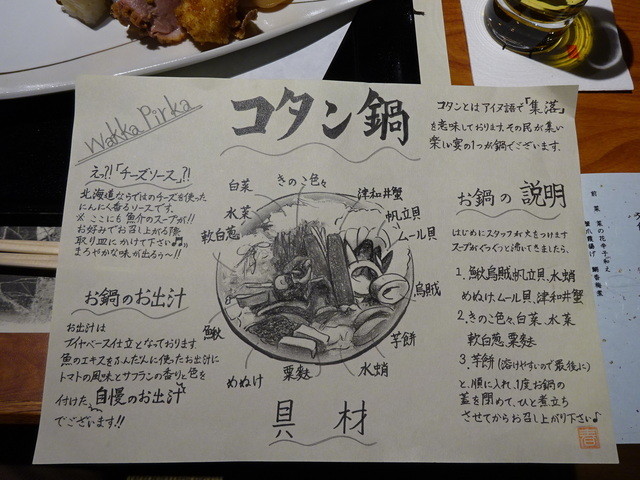 Wakka Pirka
コタン鍋
コタンとはアイヌ語で「集落」
を意味しております。その民が集い
楽しい宴の1つが鍋でございます。
えっ?!「チーズソース」?!
北海道ならではのチーズを使った
にんにく香るソースです。
※ここにも魚介のスープが!!
お好みでお召し上がる際
取り皿にかけて下さい♫
まろやかな味が出るぅ〜!!
お鍋のお出汁
お出汁は
ブイヤベース仕立となております
魚のエキスをふんだんに使ったお出汁に
トマトの風味とサフランの香りと色を
付けた、自慢のお出汁
でございます!!
きのこ色々
白菜
水菜
軟白葱
津和井蟹
帆立貝
ムール貝
烏賊
芋餅
水蛸
粟麩
めぬけ
鰍
具材
お鍋の説明
はじめにスタッフが火をつけます
スープがぐつぐつと沸いてきましたら、
1. 鰍、烏賊、帆立貝、水蛸
めぬけ、ムール貝、津和井蟹
2. きのこ色々、白菜、水菜
軟白葱、粟麩
3. 芋餅(溶けやすいので最後に)
と、順に入れ、1度お鍋の
蓋を閉めて、ひと煮立ち
させてからお召し上がり下さい♪
前菜 菜の花辛子和え